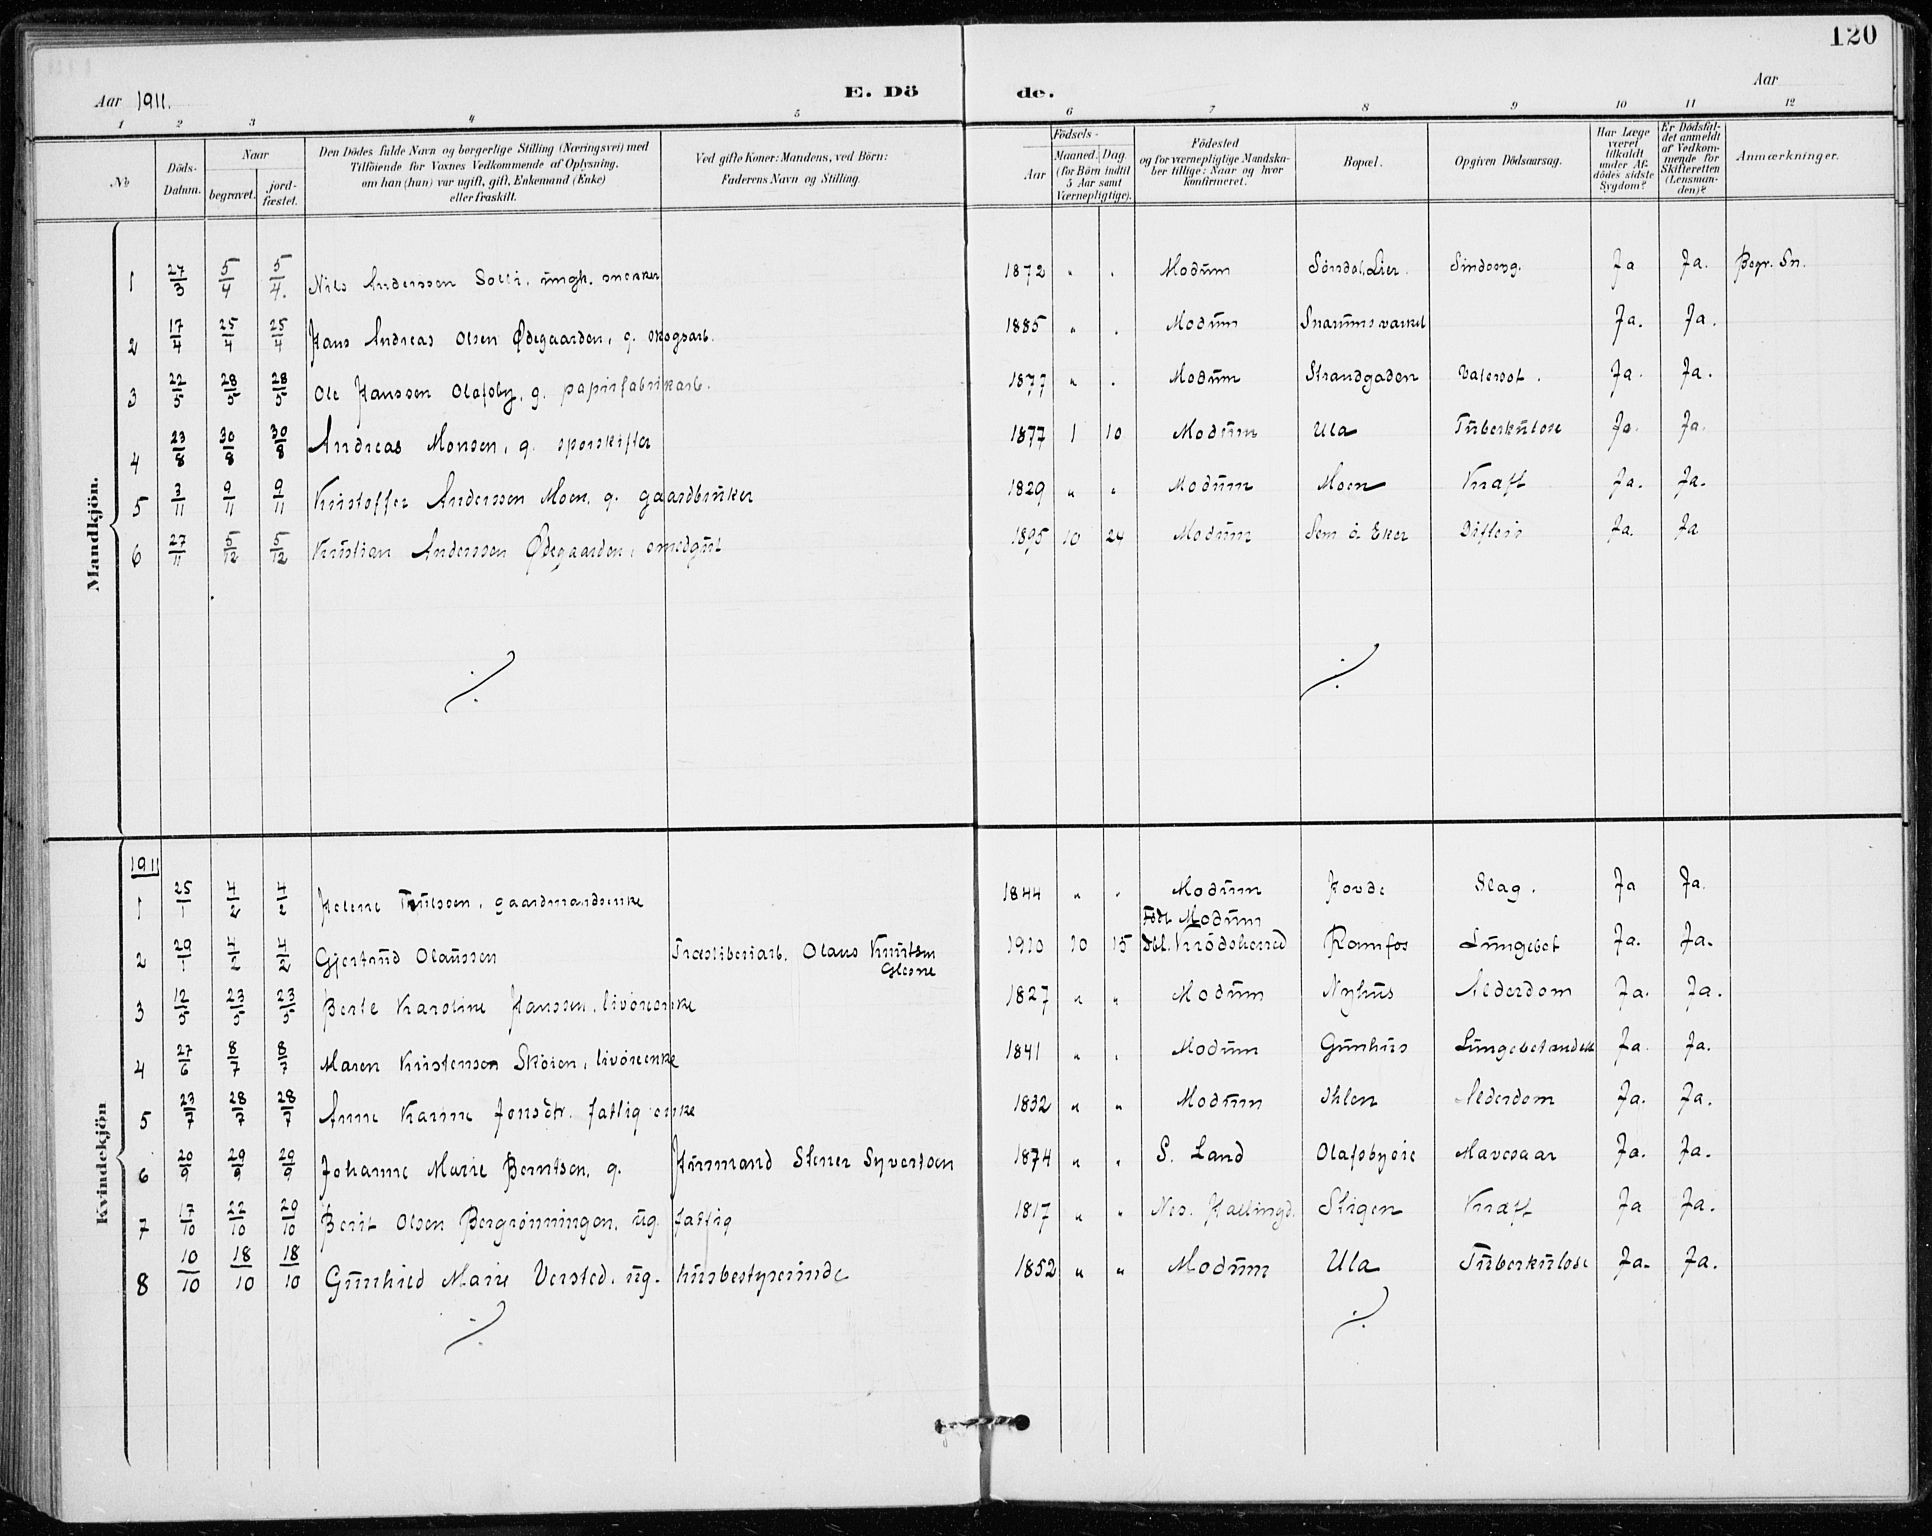 120
Aar 1911.
E. Döde.
Aar
1 2 3 4 5 6 7 8 9 10 11 12
No
Döds-Datum.
Naar
begravet.
jord-fæstet.
Den Dödes fulde Navn og borgerlige Stilling (Næringsvei) med
Tilföiende for Voxnes Vedkommende af Oplysning,
om han (hun) var ugift, gift, Enkemand (Enke)
eller fraskilt.
Ved gifte Koner: Mandens, ved Börn:
Faderens Navn og Stilling.
Födsels-
Aar
Maaned. Dag
(for Börn indtil
5 Aar samt
Værnepligtige).
Födested
og for værnepligtige Mandska-
ber tillige: Naar og hvor
konfirmeret.
Bopæl.
Opgiven Dödsaarsag.
Har Læge
været
tilkaldt
under Af-
dödes sidste
Sygdom?
Er Dödsfal-
det anmeldt
af Vedkom-
mende for
Skifteretten
(Lensman-
den)?
Anmærkninger.
Mandkjön.
1 27/3 5/4 5/4. Nils Anderssen Solli, ungk. snekker 1872 " . Modum Söndal. Lier. Ja Ja. Begr. Sn.
2 17/4 25/4 25/4 Hans Andreas Olsen Ødegaarden, g. skogsarb. 1885 " . Modum Snarumsvarket Ja. Ja.
3 22/5 28/5 28/5 Ole Hanssen Olafsby, g. papirfabrikarb. 1877 " . Modum Strandgaden Ja. Ja.
4 23/8 30/8 30/8 Andreas Monsen, g. sporskifter 1877 1 10 Modum Ula Tuberkulose Ja. Ja.
5 3/11 9/11 9/11 Kristoffer Anderssen Moen, g. gaardbruker 1829 " " Modum Moen Kræft Ja. Ja.
6 27/11 5/12 5/12 Kristian Anderssen Ødegaarden, smedgut 1895 10 24 Modum Sem ö. Eker Difteri Ja. Ja
Kvindekjön
1911
1 25/1 4/2 4/2 Helene Trulssen, gaardmandsenke 1844 " . Modum Hovde Slag. Ja Ja.
2 29/1 4/2 4/2 Gjertrud Olaussen Træsliberiarb. Olaus Knutsen Glesne 1910 10 15 Födt Modum
Dbt. Krödsherred Ramfos Lungebet Ja. Ja.
3 12/5 23/5 23/5 Berte Karoline Hanssen, livöreenke 1827 " " Modum Nyhus Alderdom Ja. Ja.
4 27/6 8/7 8/7 Maren Kristensen Skören, livöreenke 1841 " . Modum Gunhus Lungebetændelse Ja. Ja.
5 23/7 28/7 28/7 Anne Karine Jonsdtr. fattig enke 1832 " " Modum Ihlen Alderdom Ja. Ja.
6 20/9 29/9 29/9 Johanne Marie Berntsen, g. Husmand Stener Syvertsen 1874 " . S. Land Olafsbyeie Mavesaar Ja. Ja.
7 17/10 22/10 29/10 Berit Olsen Bergrönningen, ug. fattig 1817 " " Nes. Hallingd. Stigen Kræft Ja Ja.
8 10/10 18/10 18/10 Gunhild Marie Versted, ug. husbestyrerinde 1852 " " Modum Ula Tuberkulose Ja. Ja.